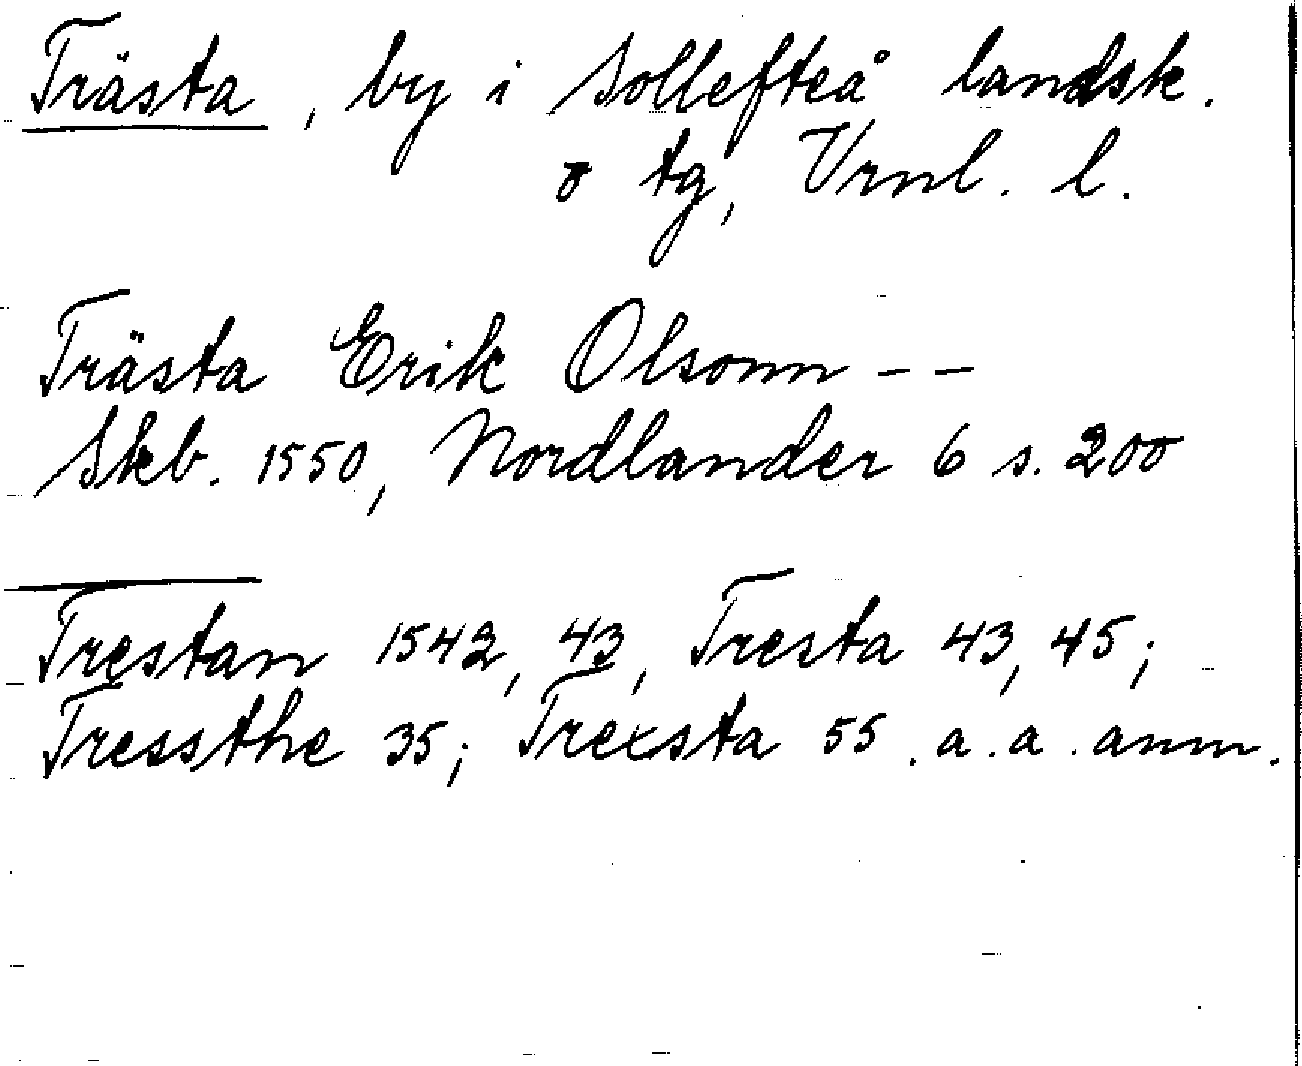 Trästa, by i Sollefteå landsk.
o tg, Vrnl. l.
Trästa Erik Olsonn - -
Skb. 1550, Nordlander 6 s. 200
Trestan 1542, 43, Tresta 43, 45;
Tressthe 35; Trexsta 55. a. a. anm.